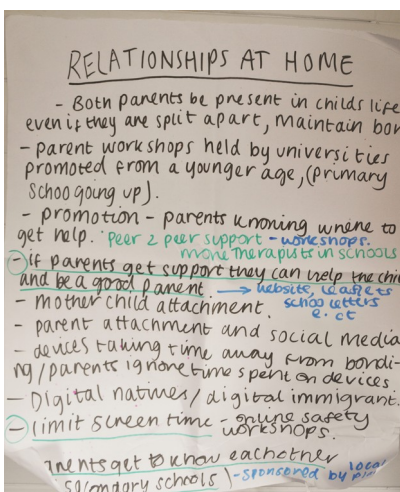 RELATIONSHIPS AT HOME
- Both parents be present in childs life
even if they are split apart, maintain
- parent workshops held by universities
promoted from a younger age, (primary
schoo going up).
- promotion - parents knoning where to
get help. peer 2 peer support - workshops.
more therapists in schools
- if parents get support they can help the
and be a good parent. → website, leaflets
- mother child attachment. school letters
e.ct
- parent attachment and social media
- devices taking time away from bondi-
ng/parents ignore time spent on devices.
- Digital natives/digital immigrant.
- limit screen time - online safety
workshops.
get to know eachother
secondary schools) - sponsored by local